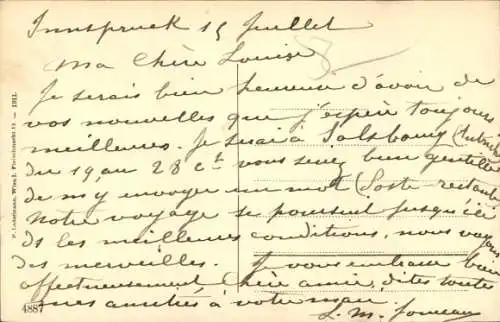 Innspruck 15 Juillet
Ma Chère Louise
Je serais bien heureuse d'avoir de
vos nouvelles que j'espère toujours
meilleures. Je serai à Salsbourg (Autriche
du 19 au 28 ct vous serez bien gentille
de m'y envoyer un mot (Poste-restante
Notre voyage se poursuit jusqu'ici
ds les meilleures conditions, nous voyons
des merveilles. Je vous embrasse bien
affectueusement Chère amie, dites toutes
mes amitiés à votre mari.
L. M.
4887
Wien I. 1911.